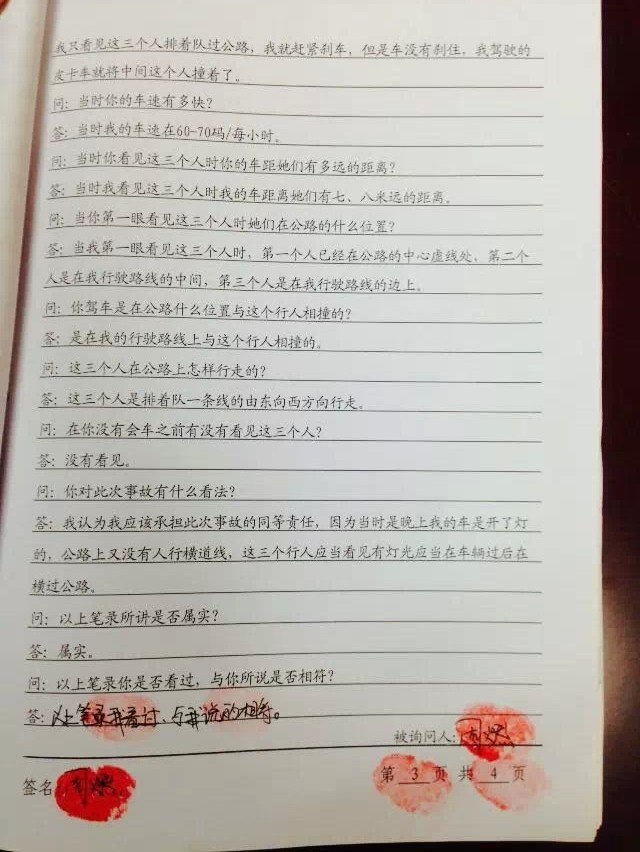 我只看见这三个人排着队过公路，我就赶紧刹车，但是车没有刹住，我驾驶的
皮卡车就将中间这个人撞着了。
问：当时你的车速有多快？
答：当时我的车速在60-70码/每小时。
问：当时你看见这三个人时你的车距她们有多远的距离？
答：当时我看见这三个人时我的车距离她们有七、八米远的距离。
问：当你第一眼看见这三个人时她们在公路的什么位置？
答：当我第一眼看见这三个人时，第一个人已经在公路的中心虚线处，第二个
人是在我行驶路线的中间，第三个人是在我行驶路线的边上。
问：你驾车是在公路什么位置与这个行人相撞的？
答：是在我的行驶路线上与这个行人相撞的。
问：这三个人在公路上怎样行走的？
答：这三个人是排着队一条线的由东向西方向行走。
问：在你没有会车之前有没有看见这三个人？
答：没有看见。
问：你对此次事故有什么看法？
答：我认为我应该承担此次事故的同等责任，因为当时是晚上我的车是开了灯
的，公路上又没有人行横道线，这三个行人应当看见有灯光应当在车辆过后在
横过公路。
问：以上笔录所讲是否属实？
答：属实。
问：以上笔录你是否看过，与你所说是否相符？
答：以上笔录我看过，与我说的相符。
被询问人：
签名
第 3 页 共 4 页